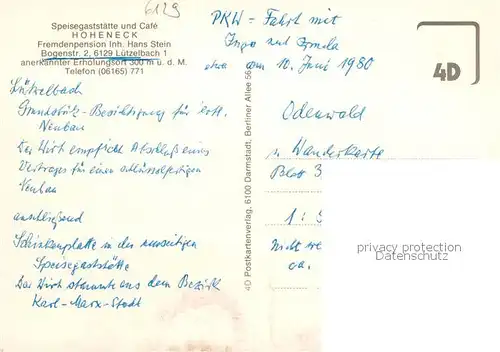 6129
Speisegaststätte und Café
HOHENECK
Fremdenpension Inh. Hans Stein
Bogenstr. 2, 6129 Lützelbach 1
anerkannter Erholungsort 300 m ü. d. M.
Telefon (06165) 771
Lützelbach
Grundstücks-Besichtigung für
Neubau
Der Wirt empfiehlt Abschluß eines
Vertrages für einen schlüsselfertigen
Neubau
anschließend
Schinkenplatte in der
Speisegaststätte
Der Wirt stammte aus dem Bezirk
Karl-Marx-Stadt
4D Postkartenverlag, 6100 Darmstadt, Berliner Allee 56
PKW-Fahrt mit
Ingo und
etwa am 10. Juni 1980
4D
Odenwald
s. Wanderkarte
Blatt 3
1:
Nicht
ca.
privacy protection
watermark